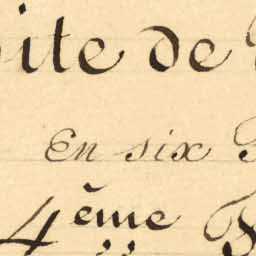 ite de
En six
4ème